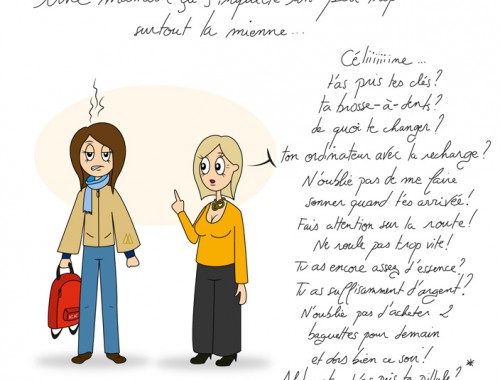 surtout la mienne...
Céliiiiiime...
t'as pris tes clés?
ta brosse-à-dents?
de quoi te changer?
ton ordinateur avec la recharge?
N'oublie pas de me faire
sonner quand t'es arrivée!
Fais attention sur la route!
Ne roule pas trop vite!
Tu as encore assez d'essence?
Tu as suffisamment d'argent?
N'oublie pas d'acheter 2
baguettes pour demain
et dors bien ce soir! *